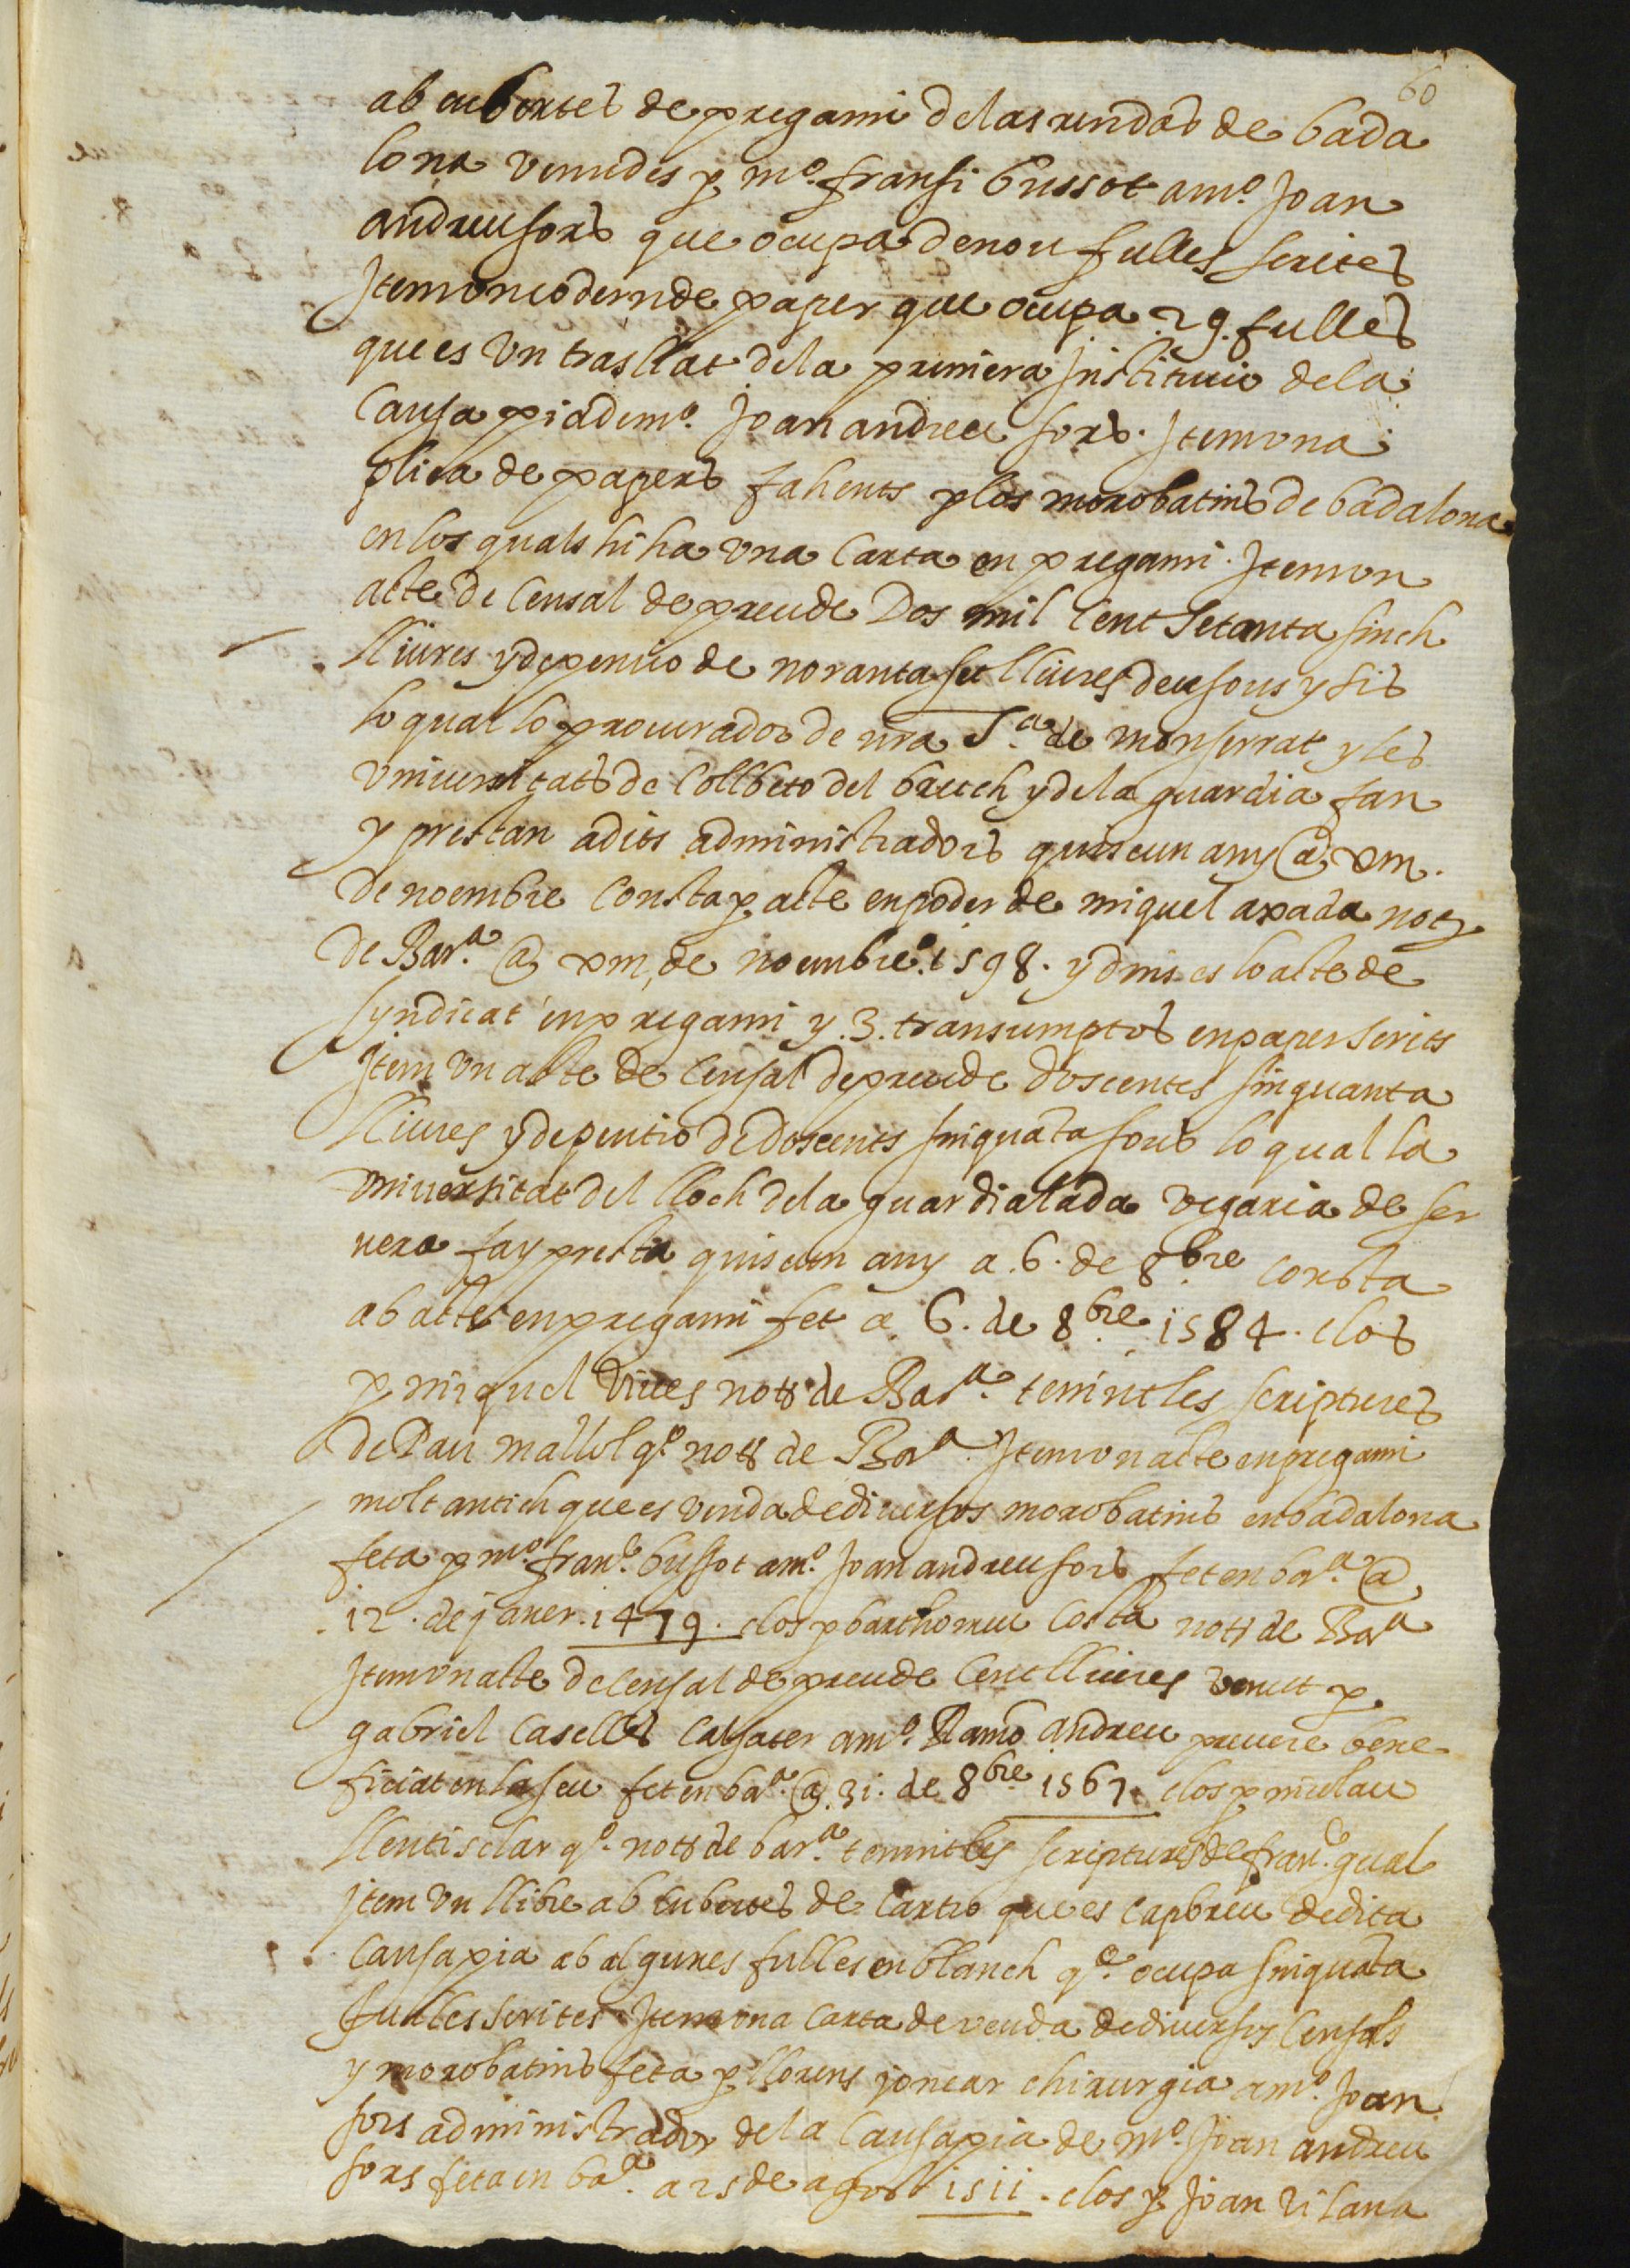 60
ab cubertes de pregami de las rendas de bada
lona venudes p mº. fransi bussot a mº. Joan
andreu fors que ocupa denou fulles scrites
Item un codern de paper que ocupa 29. fulles
que es un trasllat de la primera institucio de la
causa pia de mº. Joan andreu fors. Item una
plica de papers fahents p los morobatins de badalona
en los quals hi ha una carta en pregami. Item un
acte de censal de preu de Dos mil cent setanta sinch
lliures y de pencio de noranta set lliures deu sous y sis
lo qual lo procurador de nra Sª. de monserrat y les
universitats de Collbeto del bruch y de la guardia fan
y prestan a dits administradors quiscun any @ xm.
de noembre consta p acte en poder de miquel axada noty
de Barª. @ xm, de noembre. 1598. y dins es lo acte de
syndicat en pregami y .3. transumptos en paper scrits
Item un acte de censal de preu de doscentes sinquanta
lliures y de pentio de doscents sinquata sous lo qual la
universitat del lloch de la guardialada vegaria de ser
uera fa y presta quiscun any a .6. de 8bre consta
ab acte en pregami fet a 6. de 8bre. 1584. clos
p miquel vives noty de Barª. tenint les scriptures
de Pau mallol qº. noty de Barª. Item un acte en pregami
molt antich que es venda de diversos morobatins en badalona
feta p mº. franº. bussot a mº. Joan andreu fors fet en barª. @
.12. de janer. 1479. clos p barthomeu Costa noty de Barª
Item un acte de censal de preu de cent lliures venut p
gabriel Caselles calsater a mº. Ramo andreu prevere bene
ficiat en la seu fet en barª. @ 31. de 8bre 1567. clos p niculau
llentisclar qº. noty de barª. tenint les scriptures de franº. gual
Item un llibre ab cubertes de cartro que es capbreu de dita
causa pia ab algunes fulles en blanch qe. ocupa sinquata
fulles scrites. Item una carta de venda de diversos censals
y morobatins feta p llorens joncar chirurgia a mº. Joan
fors administrador de la causa pia de mº. Joan andreu
fors feta en baª. a 25 de agost 1511. clos p Joan vilana